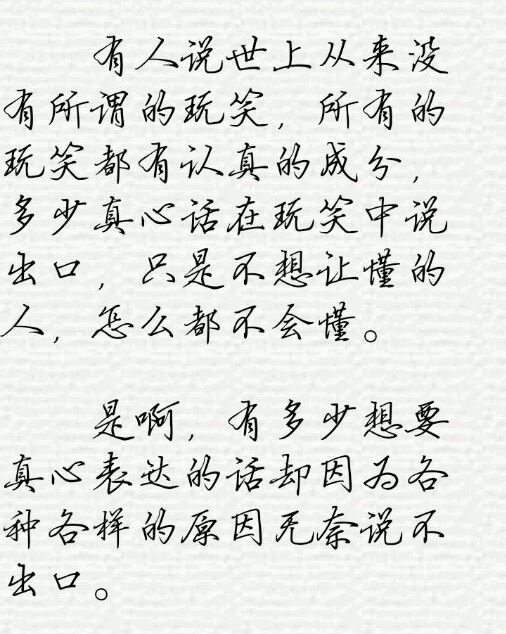 有人说世上从来没
有所谓的玩笑，所有的
玩笑都有认真的成分，
多少真心话在玩笑中说
出口，只是不想让懂的
人，怎么都不会懂。
是啊，有多少想要
真心表达的话却因为各
种各样的原因无奈说不
出口。